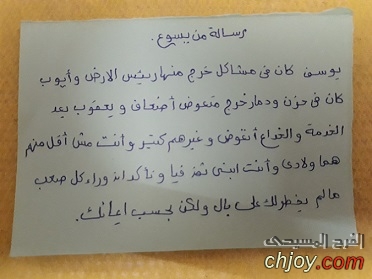 رسالة من يسوع.
يوسف كان فى مشاكل خرج منها رئيس الارض وأيوب
كان فى حزن ودمار خرج متعوض أضعاف ويعقوب بعد
الخدمة والخداع أتعوض وغيرهم كتير وأنت مش أقل منهم
هما ولادى وأنت ابنى ثق فيا وتأكد انه وراء كل صعب
مالم يخطر لك على بال ولكن بحسب ايمانك.
الفرح المسيحى
chjoy.com